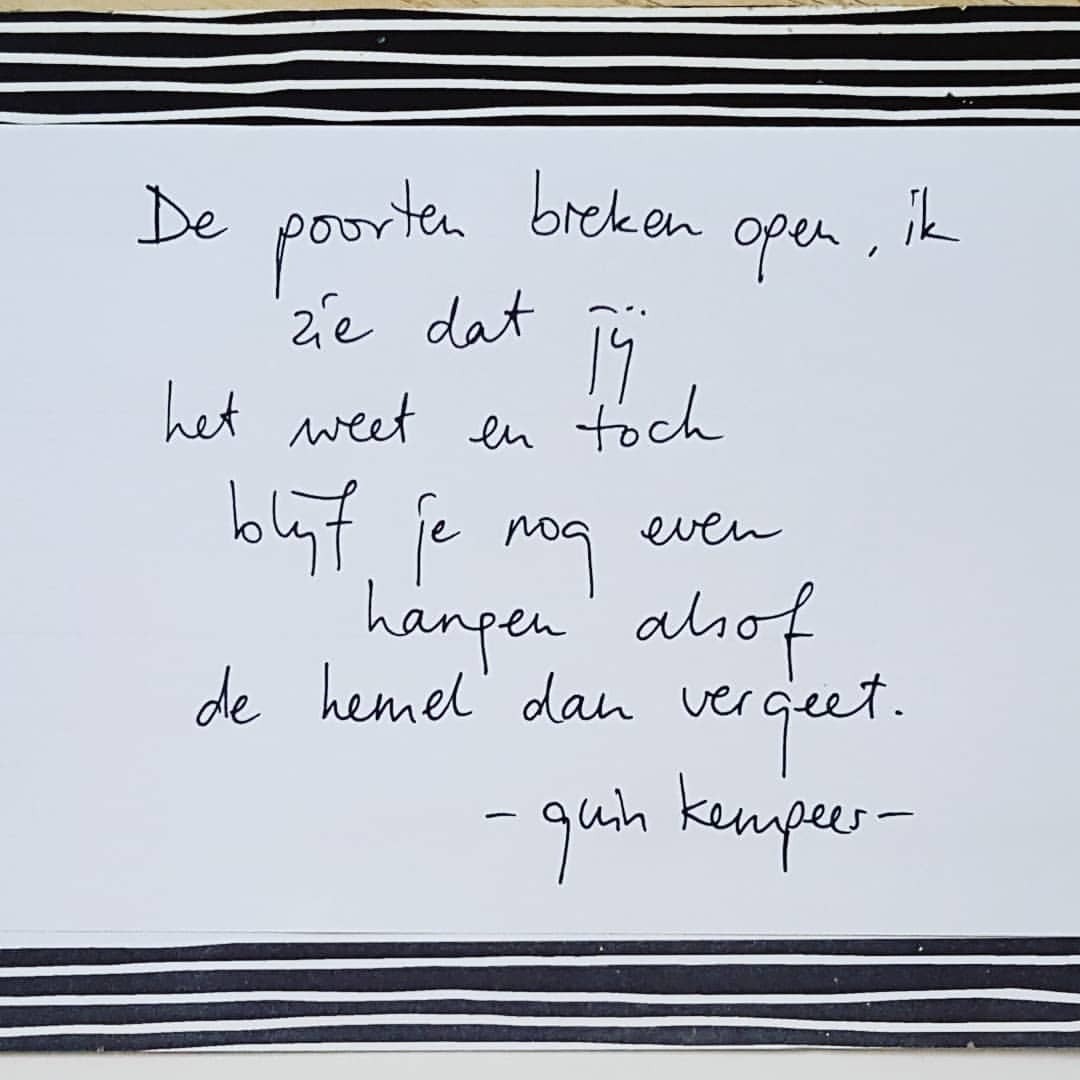 De poorten breken open, ik
zie dat jij
het weet en toch
blijf je nog even
hangen alsof
de hemel dan vergeet.
- quin kempees -